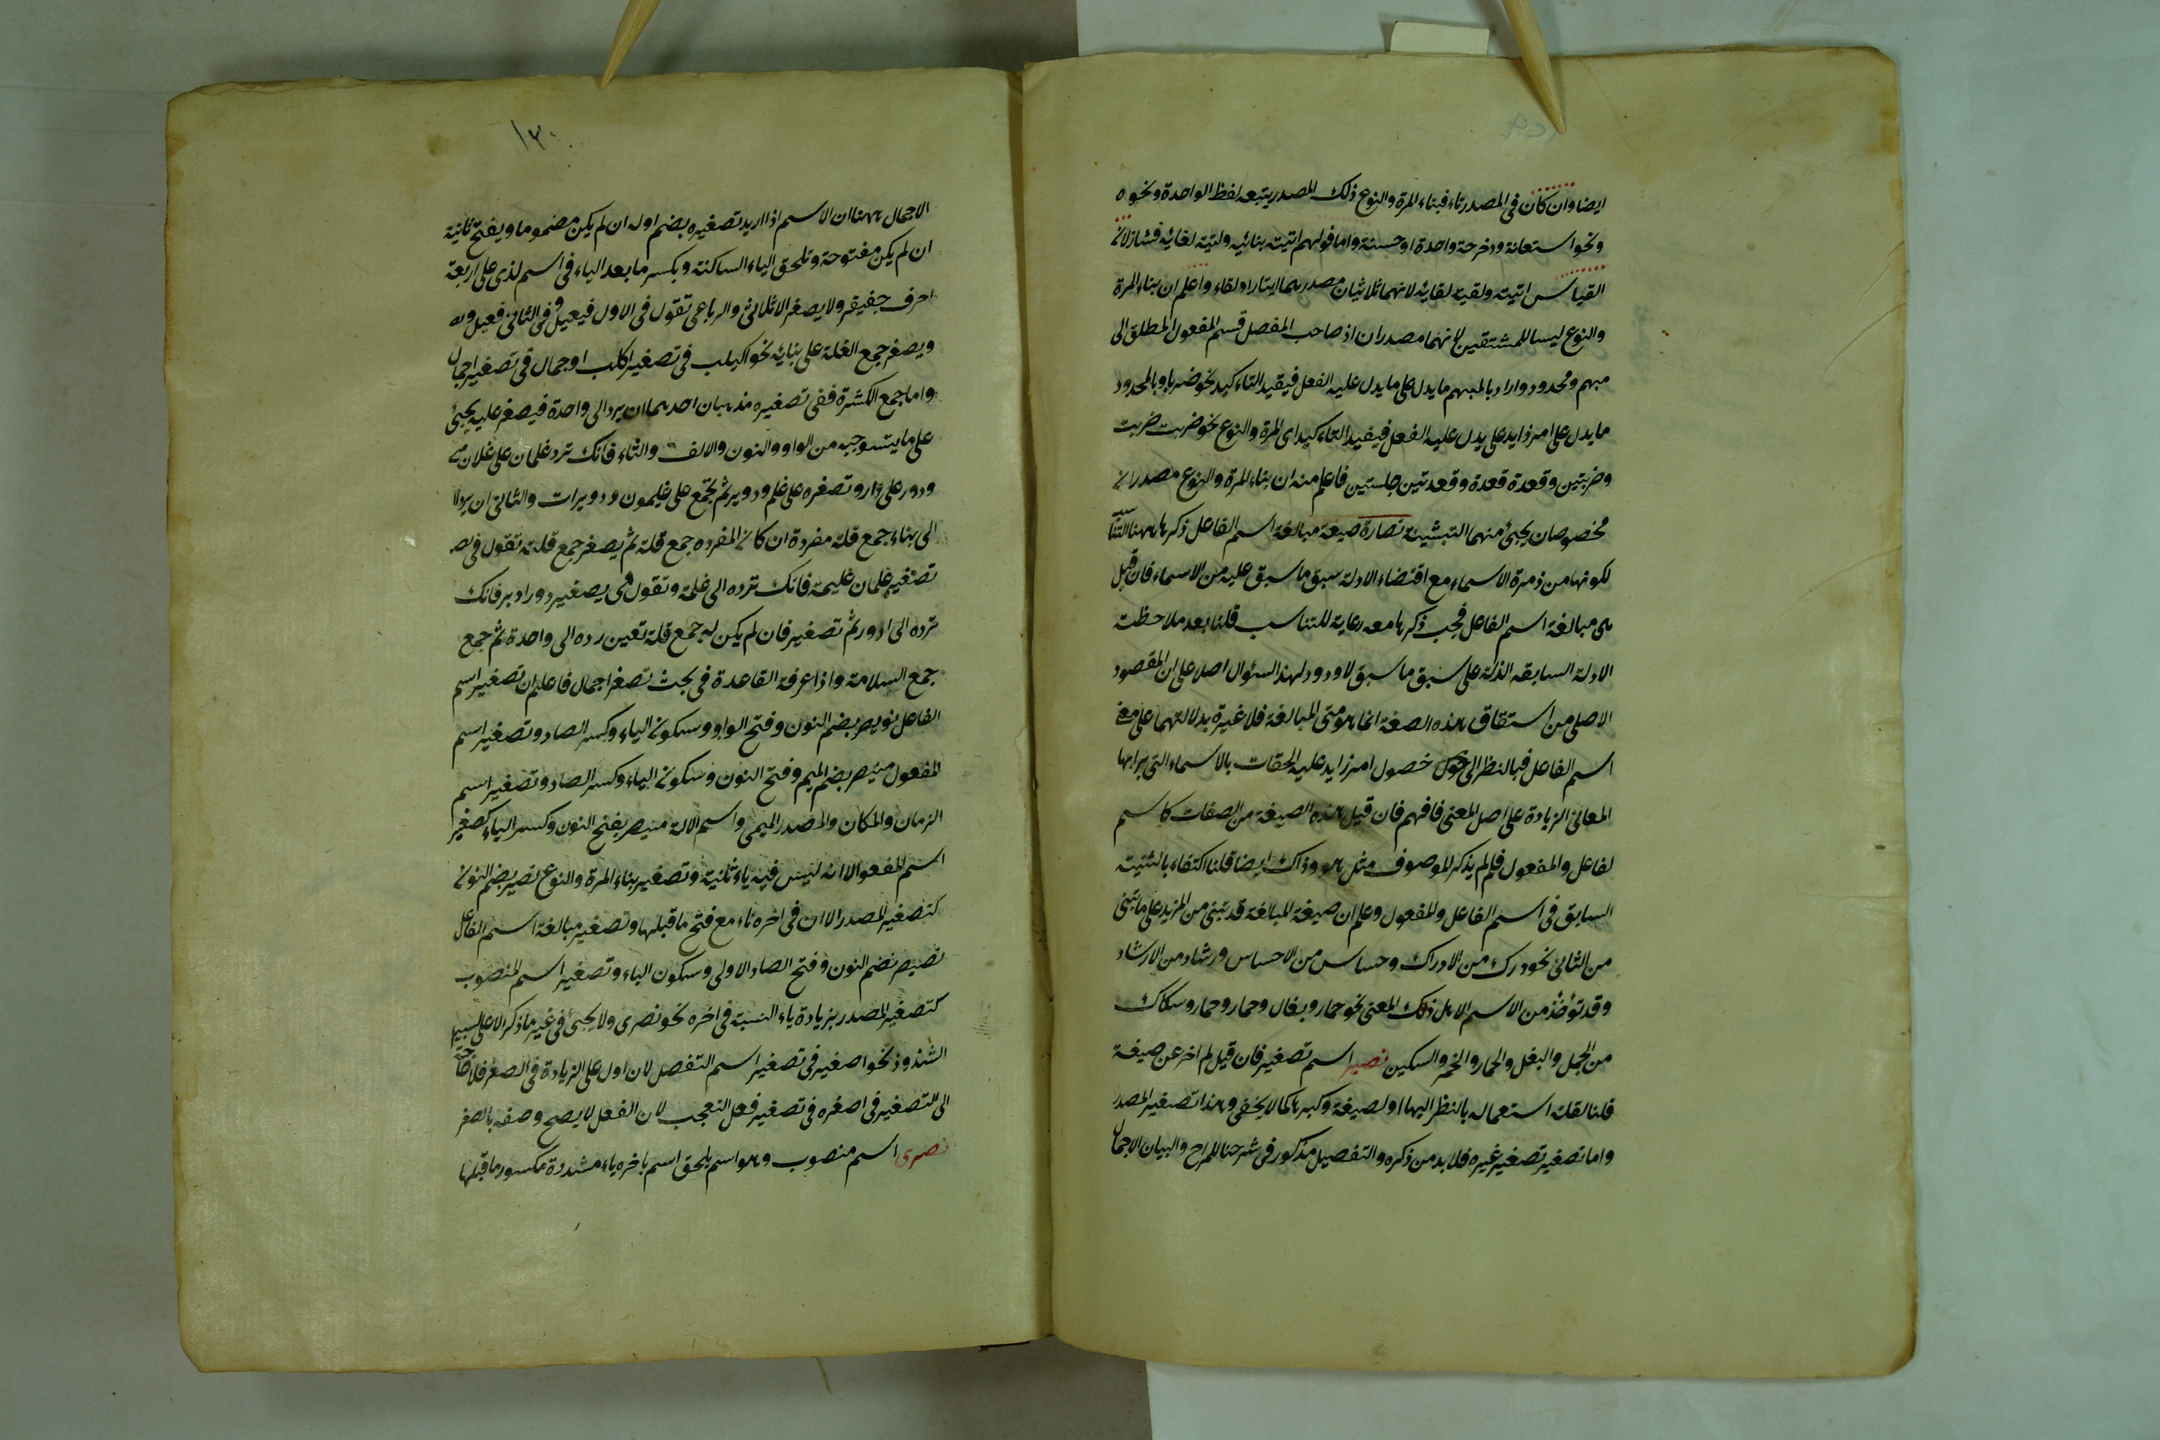 ايضا وان كان فى المصدر تاء فبناء المرة والنوع ذلك المصدر يتبعه لفظ الواحدة ونحوه
ونحو استعانة ودخرحة واحدة او حسنة واما قولهم اتيته بنائيه ولقيته لغائيه فشاذ لان
القياس اتيته ولقيته لقائه لانهما ثلاثيان مصدرهما ايتارا ولقاء واعلم ان بناء المرة
والنوع ليسا للمشتقين لانهما مصدران اذ صاحب المفصل قسم المفعول المطلق الى
مبهم ومحدود واراد بالمبهم ما يدل على ما يدل عليه الفعل فيقيد التاء كيد نحو ضربا وبالمحدود
ما يدل على امر زايد على يدل عليه الفعل فيفيد التاء كيد اى المرة والنوع نحو ضربت ضربت
وضربتين وقعدة قعدة وقعدتين جلستين فاعلم منه ان بناء المرة والنوع مصدران
مخصوصان يجئ منهما التبشينة نصارة صيغة مبالغة اسم الفاعل ذكرها ههنا
لكونها من ذمرة الاسماء مع اقتضاء الادلة سبق ما سبق عليه من الاسماء فان قيل
هى مبالغة اسم الفاعل فيجب ذكرها معه رعاية للتناسب قلنا بعد ملاحظت
الادلة السابقه الدلة على سبق ما سبق لا ورود لهذا السئوال اصلا على ان المقصود
الاصلى من استقاق هذه الصغة انما هو متى المبالغة فلا غيرة بدلالتهما على معنى
اسم الفاعل فبالنظر الى حصول امر زايد عليه الحقات بالاسماء التى يراعها
المعانى الزيادة على اصل المعنى فافهم فان قيل هذه الصيغة من الصفات كاسم
لفاعل والمفعول فلم لم يذكر الموصوف مثل هو وذاك ايضا قلنا اكتفاء بالتثيت
السابق فى اسم الفاعل والمفعول وعلم ان صيغة المبالغة قد تبنى من المزيد على ما تبنى
من الثانى نحو درك من الادراك وحساس من الاحساس ورشاد من الارشاد
وقد توخذ من الاسم الا هل ذلك المعنى نحو حمار وبغال وحمار وحمار وسكاك
من الجمل والبغل والحمار والخمر والسكين نصير اسم تصغير فان قيل لم اخر عن صيغة
قلنا لقلة استعماله بالنظر اليها او لصيغة وكبرها كما لا يخفى وهذا تصغير المصدر
واما تصغير تصغير غيره فلا بد من ذكره والتفصيل مذكور فى شرحنا للمراح والبيان الاجمال
١٣٠
الاجمال ههنا ان الاسم اذا اريد تصغيره يضم اوله ان لم يكن مضموما ويفتح ثانية
ان لم يكن مفتوحة وتلحق الياء الساكنة ويكسر ما بعد الياء فى اسم لذى على اربعة
احرف جفيفر ولا يصغر الا ثلاثى والرباعى تقول فى الاول فيعيل وفى الثانى فعيل وله
ويصغر جمع الغلة على بنائه نحو اكيلب فى تصغير اكلب اوجمال فى تصغير اجمال
واما جمع الكثرة ففى تصغيره مذهبان احدهما ان يرد الى واحدة فيصغر عليه يجئ
على ما يستوجبه من الواو والنون والالف والتاء فانك ترد غلمان على غلان
ودور على دار وتصغره على غلم ودوير ثم تجمع على غليمون ودويرات والثانى ان يرد الا
الى بناء جمع قلة مفردة ان كان المفرده جمع قلة ثم يصغر جمع قلة تقول فى
تصغير غلمان غليمة فانك ترده الى غلمة وتقول فى يصغير دور ادير فانك
ترده الى ادور ثم تصغير فان لم يكن له جمع قلة تعين رده الى واحدة ثم جمع
جمع السلامة واذا عرفة القاعدة فى بحث تصغر اجمال فاعلم ان تصغير اسم
الفاعل نويصر بضم النون وفتح الواو وسكون الياء وكسر الصاد وتصغير اسم
المفعول منيصر بضم الميم وفتح النون وسكون الياء وكسر الصاد وتصغير اسم
الزمان والمكان والمصدر الميمى واسم الالة منيصر بفتح النون وكسر الياء كصغير
اسم المفعو الا انه ليس فيه ياء ثانية وتصغير بناء المرة والنوع نصير بضم النون
كتصغير المصدر الا ان فى اخره تاء مع فتح ما قبلها وتصغير مبالغة اسم الفاعل
نصيصر نضم النون وفتح الصاد الاولى وسكون الياء وتصغير اسم المنصوب
كتصغير المصدر بزيادة ياء النسبة فى اخره نحو نصرى ولا يجئ فى غير ما ذكر الا على سبيل
الشذوذ نحو اصغير فى تصغير اسم التفصل لان اول على الزيادة فى الصغر فلا حاجة
الى التصغير فى اصغره فى تصغير فعل التعجب لان الفعل لا يصح وصفه بالصغر
نصرى اسم منصوب وهو اسم يلحق اسم باخره ياء مشددة مكسور ما قبلها